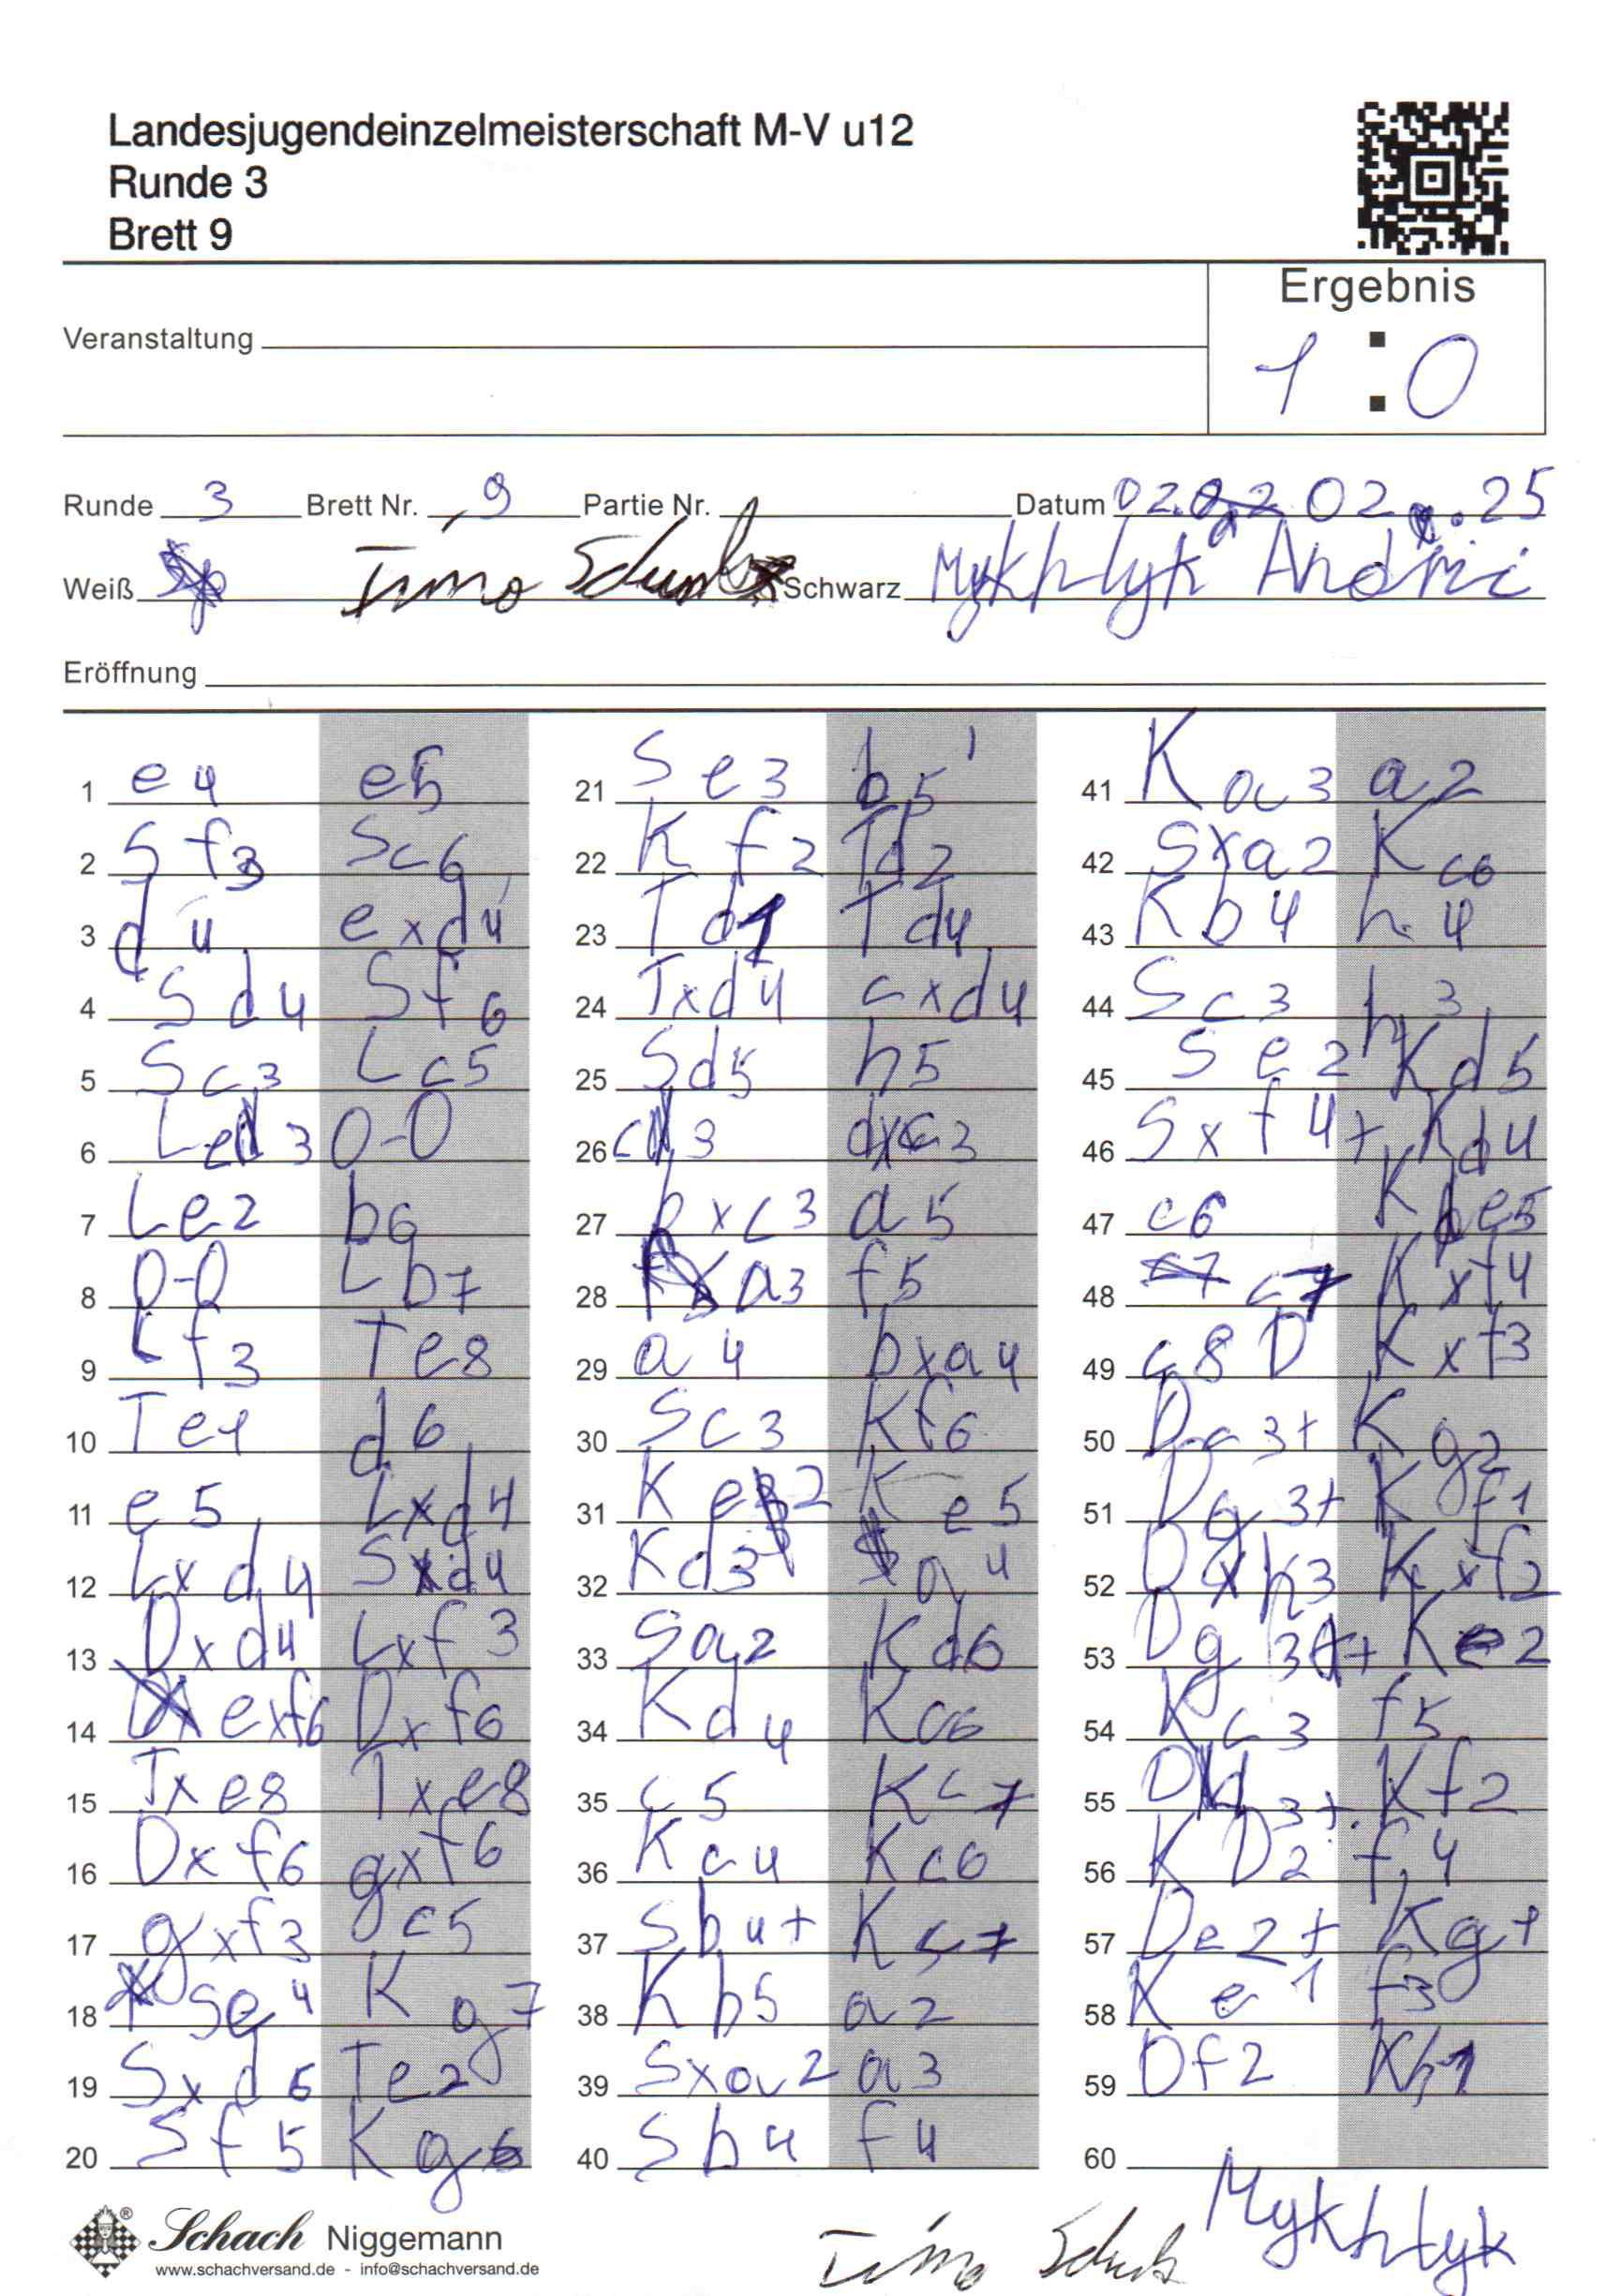 Landesjugendeinzelmeisterschaft M-V u12
Runde 3
Brett 9
Ergebnis
Veranstaltung
1 : 0
Runde 3 Brett Nr. 9 Partie Nr. Datum 02. 02. 25
Weiß Timo Schwarz Mykhlyk Andrii
Eröffnung
1 e4 e5
2 Sf3 Sc6
3 d4 exd4
4 Sd4 Sf6
5 Sc3 Lc5
6 Le3 0-0
7 Le2 b6
8 0-0 Lb7
9 Lf3 Te8
10 Te1 d6
11 e5 Lxd4
12 Lxd4 Sxd4
13 Dxd4 Lxf3
14 exf6 Dxf6
15 Txe8 Txe8
16 Dxf6 gxf6
17 gxf3 c5
18 Se4 Kg7
19 Sxd6 Te2
20 Sf5 Kg6
21 Se3 b5
22 Kf2 Td2
23 Td1 Td4
24 Txd4 cxd4
25 Sd5 h5
26 c3 dxc3
27 bxc3 a5
28 a3 f5
29 a4 bxa4
30 Sc3 Kf6
31 Ke2 Ke5
32 Kd3 a4
33 Sa2 Kd6
34 Kd4 Kc6
35 c5 Kc7
36 Kc4 Kc6
37 Sb4+ Kc7
38 Kb5 a2
39 Sxa2 a3
40 Sb4 f4
41 Ka3 a2
42 Sxa2 Kc6
43 Kb4 h4
44 Sc3 h3
45 Se2 Kd5
46 Sxf4+ Kd4
47 c6 Ke5
48 c7 Kxf4
49 c8D Kxf3
50 Dc3+ Kg2
51 Dg3+ Kf1
52 Dxh3 Kxf2
53 Dg3+ Ke2
54 Kc3 f5
55 Dd3+ Kf2
56 KD2 f4
57 De2+ Kg1
58 Ke1 f3
59 Df2 Kh1
60
Schach Niggemann
www.schachversand.de - info@schachversand.de
Timo
Mykhlyk